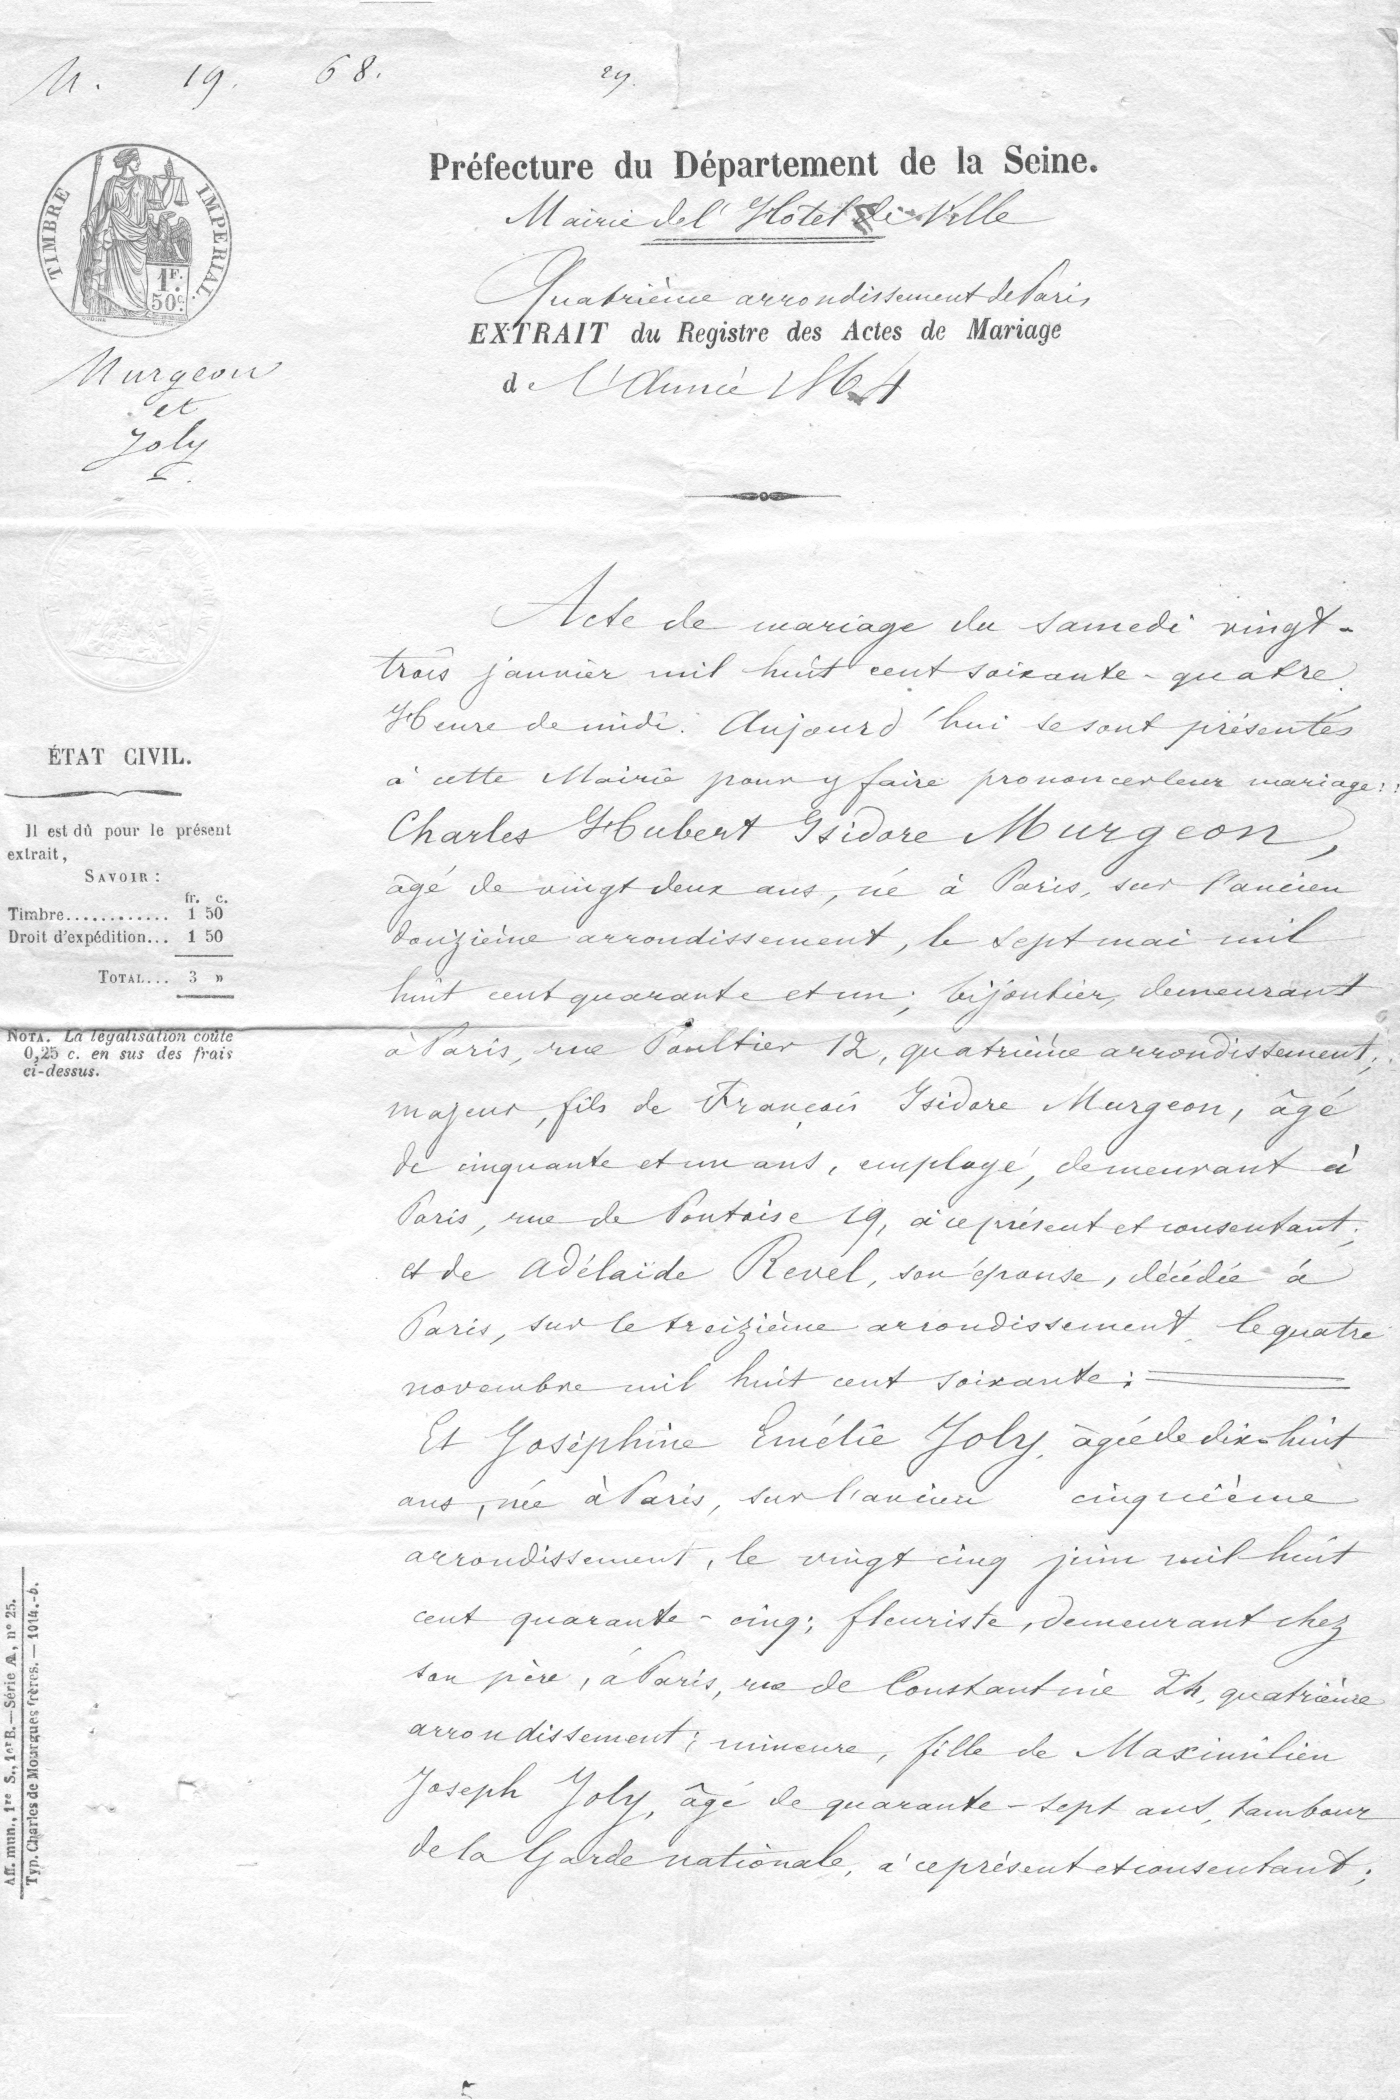 N. 19. 68. 29.
TIMBRE IMPÉRIAL.
1F.
50C.
Préfecture du Département de la Seine.
Mairie de l'Hôtel de Ville
Quatrième arrondissement de Paris
EXTRAIT du Registre des Actes de Mariage
de l'Année 1864
Murgeon
et
Joly
Acte de mariage du samedi vingt-
trois janvier mil huit cent soixante-quatre
Heure de midi. Aujourd'hui se sont présentés
à cette Mairie pour y faire prononcer leur mariage:
Charles Hubert Isidore Murgeon,
âgé de vingt deux ans, né à Paris, sur l'ancien
douzième arrondissement, le sept mai mil
huit cent quarante et un; bijoutier, demeurant
à Paris, rue Poultier 12, quatrième arrondissement;
majeur, fils de François Isidore Murgeon, âgé
de cinquante et un ans, employé, demeurant à
Paris, rue de Pontoise 19, à ce présent et consentant;
et de Adélaïde Revel, son épouse, décédée à
Paris, sur le treizième arrondissement, le quatre
novembre mil huit cent soixante:
Et Joséphine Emélie Joly, âgée de dix-huit
ans, née à Paris, sur l'ancien cinquième
arrondissement, le vingt cinq juin mil huit
cent quarante-cinq; fleuriste, demeurant chez
son père, à Paris, rue de Constantine 24, quatrième
arrondissement; mineure, fille de Maximilien
Joseph Joly, âgé de quarante-sept ans, tambour
de la Garde nationale, à ce présent et consentant;
ÉTAT CIVIL.
Il est dû pour le présent
extrait,
SAVOIR:
fr. c.
Timbre............ 1 50
Droit d'expédition... 1 50
TOTAL... 3 »
NOTA. La légalisation coûte
0,25 c. en sus des frais
ci-dessus.
Aff. mun., 1re S., 1er B.—Série A, n° 25.
Typ. Charles de Mourgues frères. — 1014.-b.